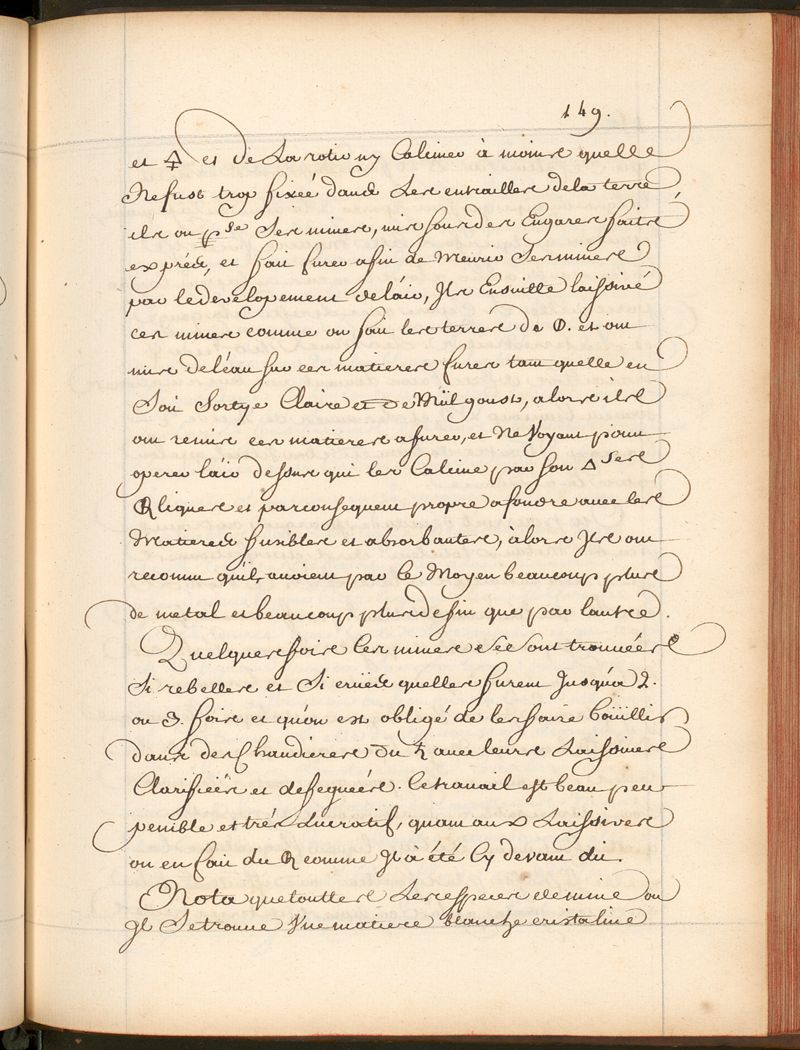 149.
et 🜍 et de La rotiony Calciner à moins quelle
Ne fust trop fixéé dans Les entrailles de la terre
ils on pse Ses mines, mis sous des Engares faits
exprés, et fait fuser afin de Meurir Ses mines
par le developement de láir, Ils Ensuitte laissivé
ces mines comme on fait les terres de 🜕. et on
mis de léau sur ces matieres fusés tant quelle en
Soit Sortye Claire et de Nül goust, alors ils
ont remis ces matieres a fuser, et Ne Voyant point
operer láir dessus qui les Calcine par son 🜂 Ses
Rliques et par consequent propre a fondre avec les
Matieres fusibles et absorbantes, àlors Ils ont
reconnu quils avoient par le Moyen beaucoup plus
de metal et beaucoup plus de fin que par lautre.
Quelques fois les mines se sont trouvéés
Si rebelles et Si crües quelles furent Jusqúa 2.
ou 3. fois et quón est obligé de les faire boüillir
dans des Chaudieres du ♄ avec leurs Laissives
Clarifiéés et defequéés. Ce travail est beau peu
penible et trés Lucratif, quant aux Laissives
on en fait du R comme Il à été Cy devant dit.
Nota que touttes Les especes de mine ou
Il Se trouve Vne matiere blanche cristaline